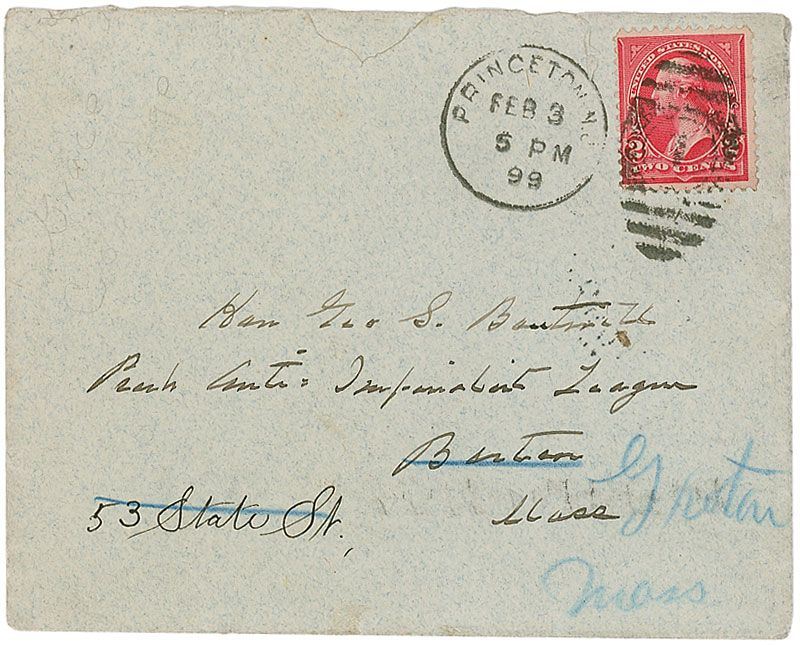 PRINCETON, N.J.
FEB 3
5 PM
99
UNITED STATES POSTAGE
2 2
TWO CENTS
Hon Geo S. Boutwell
Presh Anti-Imperialist League
Boston
53 State St.,
Mass
Groton
Mass.